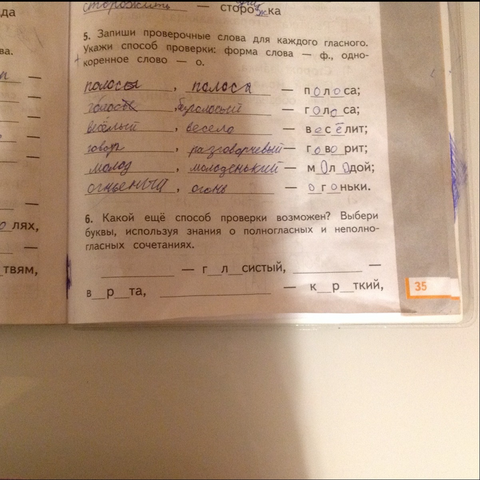 да
сторожить — сторожка
5. Запиши проверочные слова для каждого гласного.
Укажи способ проверки: форма слова — ф., одно-
коренное слово — о.
ва.
полосы, полоса — полоса;
голоса;
весёлый, весело — веселит;
говор, разговорчивый — говорит;
молод, молоденький — молодой;
огонь — огоньки.
6. Какой ещё способ проверки возможен? Выбери
буквы, используя знания о полногласных и неполно-
гласных сочетаниях.
о лях,
— г_л_систый, —
твям,
в_р_та, — к_р_ткий,
35